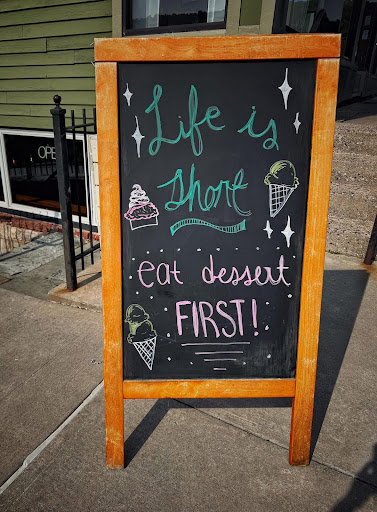 OPE
Life is
short
eat dessert
FIRST!